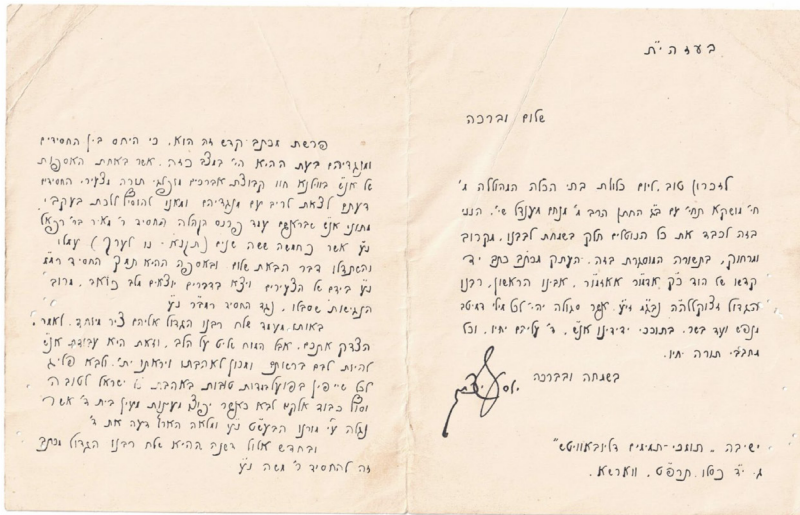 בעזהי"ת
שלום וברכה
לזכרון טוב, ליום כלולת בתי הכלה המהוללה מ'
חי' מושקא תחי' עם ב"ג החתן הרב מ' מנחם מענדל שי', הנני
בזה לכבד את כל הנוטלים חלק בשמחת לבבנו, מקרוב
ומרחוק, בתשורה המוסגרת בזה, העתק מכתב כתב יד
קדשו של הוד כ"ק אדמו"ר אאזמו"ר, אבינו הראשון, רבנו
הגדול זצוקללה"ה נבג"מ זי"ע, אשר סגולה יהי' לכל מילי דמיטב
מנפש ועד בשר, בתוככי ידידינו אנ"ש, ד' עליהם יחיו, וכל
מחבבי תורה יחיו.
בשמחה ובברכה
יוסף יצחק
ישיבה - תומכי-תמימים דליובאוויטש"
ג. י"ד כסלו, תרפ"ט, ווארשא.
פרשת מכתב קדש זה הוא, כי היחס בין החסידים
ומנגדיהם בעת ההיא הי' במצב כזה, אשר באחת האספות
של אנ"ש בווילנא חוו קבוצת אברכים מופלגי תורה מצעירי החסידים
דעתם לצאת לריב עם מנגדיהם ומאנו להוסיף ללכת בעקבי
מתוני אנ"ש שבראשם עמד פרנס הקהלה החסיד ר' מאיר בר' רפאל
נ"ע אשר כחמשה ששה שנים (תקנ"א - נו לערך) עמלו
והשתדלו דבר הבאת שלום ובאספה ההיא תמך החסיד רמ"מ
נ"ע בידם של הצעירים ויצא בדברים יוצאים מלב כואב, מרוב
הנגישות שסבלו, נגד החסיד רמב"ר נ"ע
באותו מעמד שלח רבנו הגדול אליהם ציר מיוחד, לאמר
הצדק אתכם, אבל המוח שליט על הלב, וזאת היא עבודת אנ"ש
להיות לבם ברשותם ומכוון לאהבתו ויראתו ית', ולבא פליג
לכל שייפין בפועל מדות טובות באהבת ישראל לטובה
וסוף כבוד אלקים לבא כאשר יפוצו מעינות מעין בית ד' אשר
נגלה ע"י מורנו הבעש"ט נ"ע ומלאה הארץ דעה את ד'
ובחדש אלול דשנה ההיא שלח רבנו הגדול מכתב
זה להחסיד ר' משה נ"ע